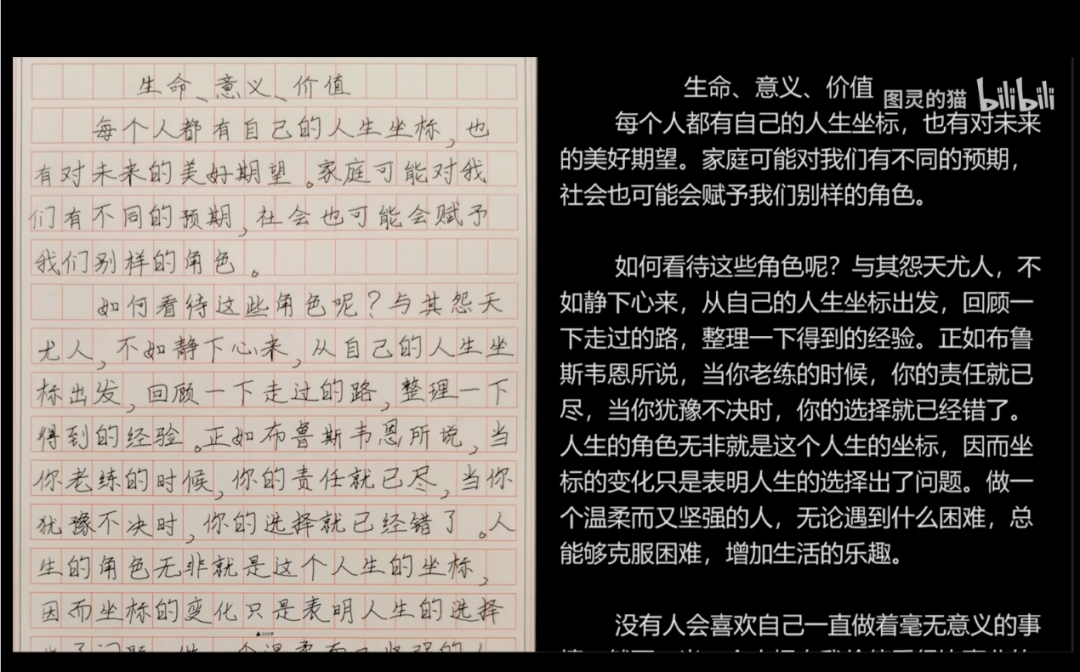 生命、意义、价值
每个人都有自己的人生坐标，也
有对未来的美好期望。家庭可能对我
们有不同的预期，社会也可能会赋予
我们别样的角色。
如何看待这些角色呢？与其怨天
尤人，不如静下心来，从自己的人生坐
标出发，回顾一下走过的路，整理一下
得到的经验。正如布鲁斯韦恩所说，当
你老练的时候，你的责任就已尽，当你
犹豫不决时，你的选择就已经错了。人
生的角色无非就是这个人生的坐标，
因而坐标的变化只是表明人生的选择
生命、意义、价值
图灵的猫 bilibili
每个人都有自己的人生坐标，也有对未来
的美好期望。家庭可能对我们有不同的预期，
社会也可能会赋予我们别样的角色。
如何看待这些角色呢？与其怨天尤人，不
如静下心来，从自己的人生坐标出发，回顾一
下走过的路，整理一下得到的经验。正如布鲁
斯韦恩所说，当你老练的时候，你的责任就已
尽，当你犹豫不决时，你的选择就已经错了。
人生的角色无非就是这个人生的坐标，因而坐
标的变化只是表明人生的选择出了问题。做一
个温柔而又坚强的人，无论遇到什么困难，总
能够克服困难，增加生活的乐趣。
没有人会喜欢自己一直做着毫无意义的事